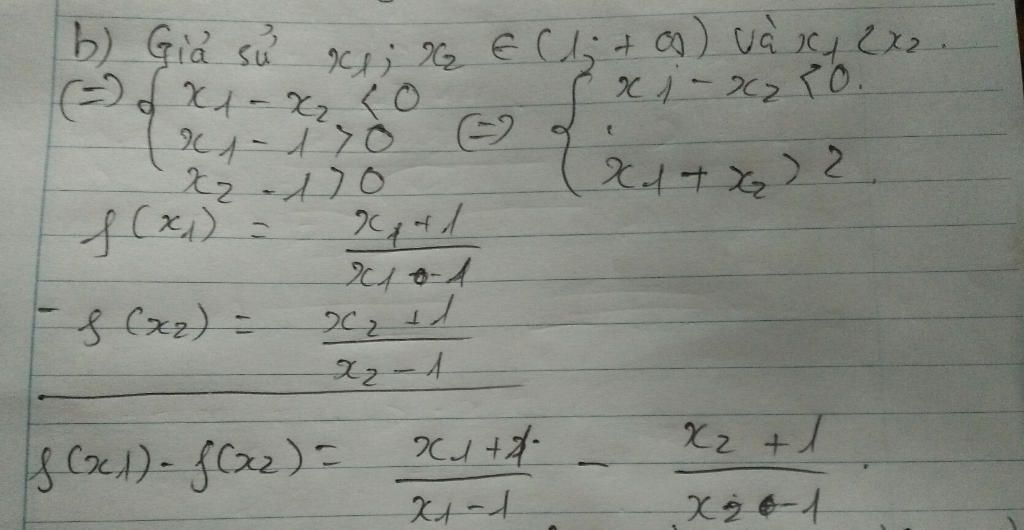 b) Giả sử x₁; x₂ ∈ (1; +∞) và x₁ < x₂.
(=) { x₁ - x₂ < 0 (=) { x₁ - x₂ < 0.
x₁ - 1 > 0
x₂ - 1 > 0 x₁ + x₂ > 2.
f(x₁) = (x₁ + 1)/(x₁ - 1)
- f(x₂) = (x₂ + 1)/(x₂ - 1)
f(x₁) - f(x₂) = (x₁ + 1)/(x₁ - 1) - (x₂ + 1)/(x₂ - 1).